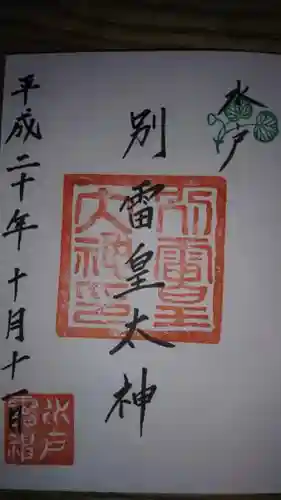 水戸
別雷皇太神
平成二十年十月十一日
別雷皇
太神印
水戸
雷神